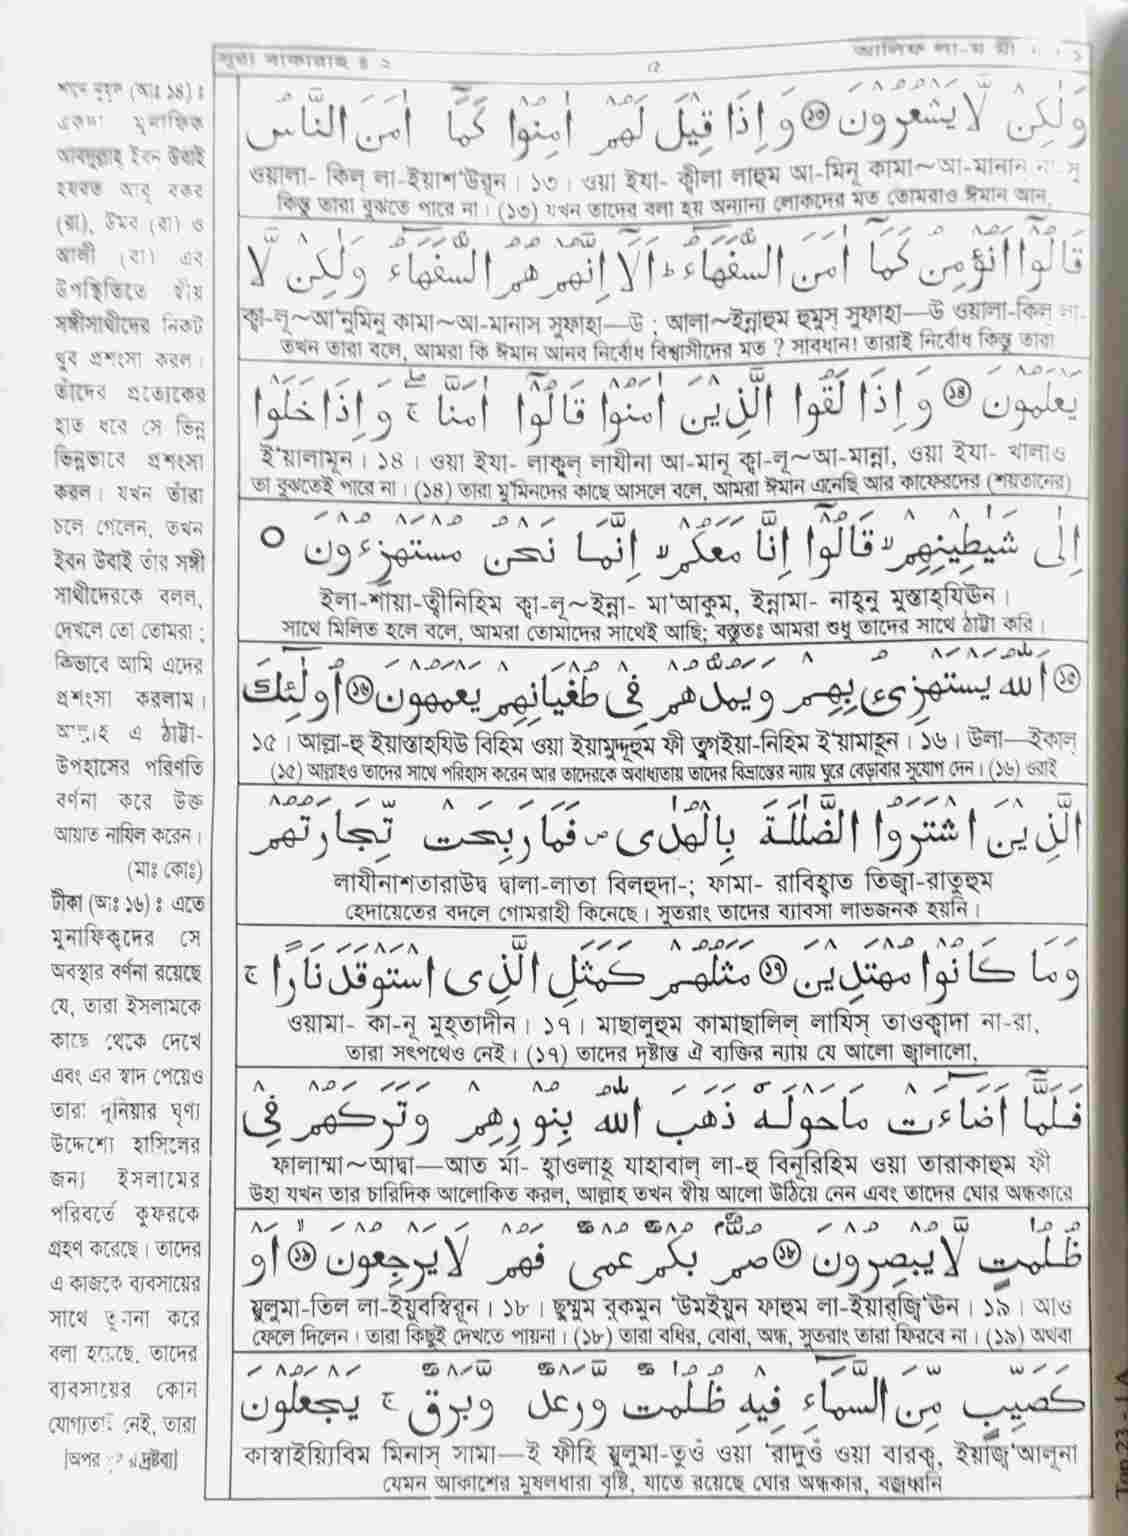 সূরা বাকারাহ ঃ ২
৫
আলিফ লা-ম মী
১
শানে নুযূল (আঃ ১৪) ঃ
একদা মুনাফিক
আবদুল্লাহ ইবন উবাই
হযরত আবূ বকর
(রা), উমর (রা) ও
আলী (রা) এর
উপস্থিতিতে স্বীয়
সঙ্গীসাথীদের নিকট
খুব প্রশংসা করল।
তাঁদের প্রত্যেকের
হাত ধরে সে ভিন্ন
ভিন্নভাবে প্রশংসা
করল। যখন তাঁরা
চলে গেলেন, তখন
ইবন উবাই তাঁর সঙ্গী
সাথীদেরকে বলল,
দেখলে তো তোমরা ;
কিভাবে আমি এদের
প্রশংসা করলাম।
আল্লাহ এ ঠাট্টা-
উপহাসের পরিণতি
বর্ণনা করে উক্ত
আয়াত নাযিল করেন।
(মাঃ কোঃ)
টীকা (আঃ ১৬) ঃ এতে
মুনাফিক্বদের সে
অবস্থার বর্ণনা রয়েছে
যে, তারা ইসলামকে
কাছে থেকে দেখে
এবং এর স্বাদ পেয়েও
তারা দুনিয়ার ঘৃণ্য
উদ্দেশ্যে হাসিলের
জন্য ইসলামের
পরিবর্তে কুফরকে
গ্রহণ করেছে। তাদের
এ কাজকে ব্যবসায়ের
সাথে তুলনা করে
বলা হয়েছে, তাদের
ব্যবসায়ের কোন
যোগ্যতাই নেই, তারা
[অপর পৃঃ দ্রষ্টব্য]
وَلٰكِنْ لَّا يَشْعُرُوْنَ ⑫ وَاِذَا قِيْلَ لَهُمْ اٰمِنُوْا كَمَاۤ اٰمَنَ النَّاسُ
ওয়ালা- কিল্ লা-ইয়াশ'উরূন। ১৩। ওয়া ইযা- ক্বীলা লাহুম আ-মিনূ কামা~আ-মানান না-সু
কিন্তু তারা বুঝতে পারে না। (১৩) যখন তাদের বলা হয় অন্যান্য লোকদের মত তোমরাও ঈমান আন,
قَالُوْۤا اَنُؤْمِنُ كَمَاۤ اٰمَنَ السُّفَهَآءُ ؕ اَلَاۤ اِنَّهُمْ هُمُ السُّفَهَآءُ وَلٰكِنْ لَّا
ক্বা-লূ~আ'নুমিনু কামা~আ-মানাস সুফাহা—উ ; আলা~ইন্নাহুম হুমুস্ সুফাহা—উ ওয়ালা-কিল্ লা-
তখন তারা বলে, আমরা কি ঈমান আনব নির্বোধ বিশ্বাসীদের মত ? সাবধান! তারাই নির্বোধ কিন্তু তারা
يَعْلَمُوْنَ ⑬ وَاِذَا لَقُوا الَّذِيْنَ اٰمَنُوْا قَالُوْۤا اٰمَنَّا ۚ وَاِذَا خَلَوْا
ই'য়ালামূন। ১৪। ওয়া ইযা- লাকুল্ লাযীনা আ-মানূ ক্বা-লূ~আ-মান্না, ওয়া ইযা- খালাও
তা বুঝতেই পারে না। (১৪) তারা মু'মিনদের কাছে আসলে বলে, আমরা ঈমান এনেছি আর কাফেরদের (শয়তানের)
اِلٰى شَيٰطِيْنِهِمْ ۙ قَالُوْۤا اِنَّا مَعَكُمْ ۙ اِنَّمَا نَحْنُ مُسْتَهْزِءُوْنَ ○
ইলা-শায়া-ত্বীনিহিম ক্বা-লূ~ইন্না- মা'আকুম, ইন্নামা- নাহ্নু মুস্তাহ্যিঊন।
সাথে মিলিত হলে বলে, আমরা তোমাদের সাথেই আছি; বস্তুতঃ আমরা শুধু তাদের সাথে ঠাট্টা করি।
⑮ اَللّٰهُ يَسْتَهْزِئُ بِهِمْ وَيَمُدُّهُمْ فِيْ طُغْيَانِهِمْ يَعْمَهُوْنَ ⑯ اُولٰٓئِكَ
১৫। আল্লা-হু ইয়াস্তাহযিউ বিহিম ওয়া ইয়ামুদ্দুহুম ফী ত্বুগ্ইয়া-নিহিম ই'য়ামাহূন। ১৬। উলা—ইকাল্
(১৫) আল্লাহও তাদের সাথে পরিহাস করেন আর তাদেরকে অবাধ্যতায় তাদের বিভ্রান্তের ন্যায় ঘুরে বেড়াবার সুযোগ দেন। (১৬) ওরাই
الَّذِيْنَ اشْتَرَوُا الضَّلٰلَةَ بِالْهُدٰى ۪ فَمَا رَبِحَتْ تِّجَارَتُهُمْ
লাযীনাশতারাউদ্ব দ্বালা-লাতা বিলহুদা-; ফামা- রাবিহ্বাত তিজ্বা-রাতুহুম
হেদায়েতের বদলে গোমরাহী কিনেছে। সুতরাং তাদের ব্যাবসা লাভজনক হয়নি।
وَمَا كَانُوْا مُهْتَدِيْنَ ⑰ مَثَلُهُمْ كَمَثَلِ الَّذِي اسْتَوْقَدَ نَارًا ۚ
ওয়ামা- কা-নূ মুহ্তাদীন। ১৭। মাছালুহুম কামাছালিল্ লাযিস্ তাওক্বাদা না-রা,
তারা সৎপথেও নেই। (১৭) তাদের দৃষ্টান্ত ঐ ব্যক্তির ন্যায় যে আলো জ্বালালো,
فَلَمَّاۤ اَضَآءَتْ مَا حَوْلَهٗ ذَهَبَ اللّٰهُ بِنُوْرِهِمْ وَتَرَكَهُمْ فِيْ
ফালাম্মা~আদ্বা—আত মা- হ্বাওলাহূ যাহাবাল্ লা-হু বিনূরিহিম ওয়া তারাকাহুম ফী
উহা যখন তার চারিদিক আলোকিত করল, আল্লাহ তখন স্বীয় আলো উঠিয়ে নেন এবং তাদের ঘোর অন্ধকারে
ظُلُمٰتٍ لَّا يُبْصِرُوْنَ ⑱ صُمٌّۢ بُكْمٌ عُمْيٌ فَهُمْ لَا يَرْجِعُوْنَ ۙ ⑲ اَوْ
য়ুলুমা-তিল লা-ইয়ুবস্বিরূন। ১৮। ছুম্মুম বুকমুন 'উমইয়ুন ফাহুম লা-ইয়ার্জ্বি'ঊন। ১৯। আও
ফেলে দিলেন। তারা কিছুই দেখতে পায়না। (১৮) তারা বধির, বোবা, অন্ধ, সুতরাং তারা ফিরবে না। (১৯) অথবা
كَصَيِّبٍ مِّنَ السَّمَآءِ فِيْهِ ظُلُمٰتٌ وَّرَعْدٌ وَّبَرْقٌ ۚ يَجْعَلُوْنَ
কাস্বাইয়্যিবিম মিনাস্ সামা—ই ফীহি য়ুলুমা-তুওঁ ওয়া 'রাদুওঁ ওয়া বারক্ব, ইয়াজ্ব'আলূনা
যেমন আকাশের মুষলধারা বৃষ্টি, যাতে রয়েছে ঘোর অন্ধকার, বজ্রধ্বনি